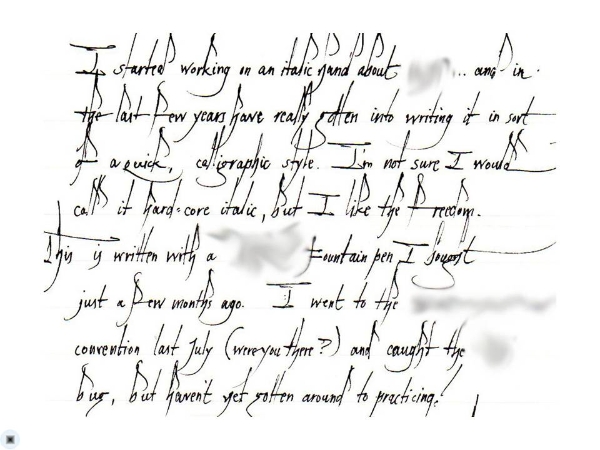 I started working on an italic hand about ... and in
the last few years have really gotten into writing it in sort
of a quick, calligraphic style. I'm not sure I would
call it hard-core italic, but I like the freedom.
This is written with a fountain pen I bought
just a few months ago. I went to the
convention last July (were you there?) and caught the
bug, but haven't yet gotten around to practicing!